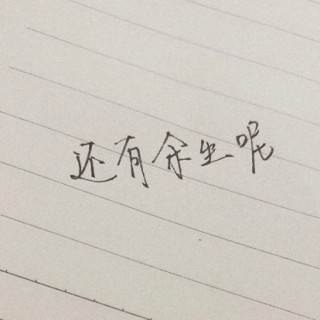 还有余生呢